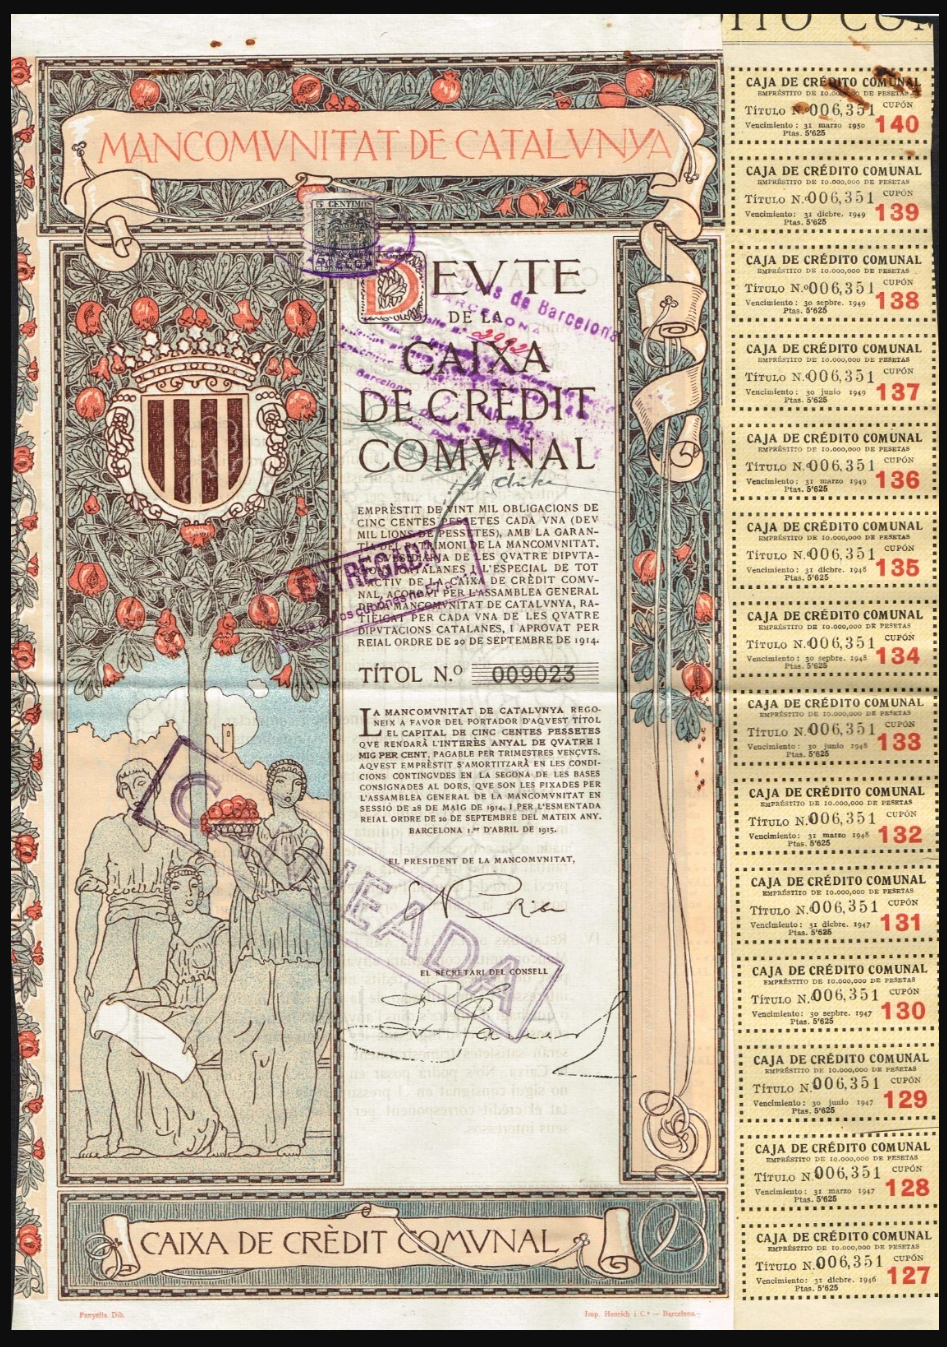 MANCOMVNITAT DE CATALVNYA
5 CENTIMOS
DEVTE
DE LA
CAIXA
DE CREDIT
COMVNAL
EMPRÈSTIT DE VINT MIL OBLIGACIONS DE
CINC CENTES PESSETES CADA VNA (DEV
MIL LIONS DE PESSETES), AMB LA GARAN-
TIA DEL PATRIMONI DE LA MANCOMVNITAT,
DE LES QVATRE DIPVTA-
CATALANES I L'ESPECIAL DE TOT
ACTIV DE LA CAIXA DE CRÈDIT COMV-
NAL, ACORDAT PER L'ASSAMBLEA GENERAL
DE LA MANCOMVNITAT DE CATALVNYA, RA-
TIFICAT PER CADA VNA DE LES QVATRE
DIPVTACIONS CATALANES, I APROVAT PER
REIAL ORDRE DE 20 DE SEPTEMBRE DE 1914.
TÍTOL N.º 009023
LA MANCOMVNITAT DE CATALVNYA REGO-
NEIX A FAVOR DEL PORTADOR D'AQVEST TÍTOL
EL CAPITAL DE CINC CENTES PESSETES
QVE RENDARÀ L'INTERÈS ANYAL DE QVATRE I
MIG PER CENT, PAGABLE PER TRIMESTRES VENÇVTS.
AQVEST EMPRÈSTIT S'AMORTITZARÀ EN LES CONDI-
CIONS CONTINGVDES EN LA SEGONA DE LES BASES
CONSIGNADES AL DORS, QVE SON LES FIXADES PER
L'ASSAMBLEA GENERAL DE LA MANCOMVNITAT EN
SESSIÓ DE 28 DE MAIG DE 1914, I PER L'ESMENTADA
REIAL ORDRE DE 20 DE SEPTEMBRE DEL MATEIX ANY.
BARCELONA 1.er D'ABRIL DE 1915.
EL PRESIDENT DE LA MANCOMVNITAT,
EL SECRETARI DEL CONSELL
CANJEADA
ENTREGADA
de Barcelona
CAIXA DE CRÈDIT COMVNAL
Imp. Henrich i C.ª — Barcelona.
CAJA DE CRÉDITO COMUNAL
EMPRÉSTITO DE 10.000,000 DE PESETAS
TÍTULO N.º 006,351 CUPÓN
Vencimiento: 31 marzo 1950 140
Ptas. 5'625
CAJA DE CRÉDITO COMUNAL
EMPRÉSTITO DE 10.000,000 DE PESETAS
TÍTULO N.º 006,351 CUPÓN
Vencimiento: 31 dicbre. 1949 139
Ptas. 5'625
CAJA DE CRÉDITO COMUNAL
EMPRÉSTITO DE 10.000,000 DE PESETAS
TÍTULO N.º 006,351 CUPÓN
Vencimiento: 30 sepbre. 1949 138
Ptas. 5'625
CAJA DE CRÉDITO COMUNAL
EMPRÉSTITO DE 10.000,000 DE PESETAS
TÍTULO N.º 006,351 CUPÓN
Vencimiento: 30 junio 1949 137
Ptas. 5'625
CAJA DE CRÉDITO COMUNAL
EMPRÉSTITO DE 10.000,000 DE PESETAS
TÍTULO N.º 006,351 CUPÓN
Vencimiento: 31 marzo 1949 136
Ptas. 5'625
CAJA DE CRÉDITO COMUNAL
EMPRÉSTITO DE 10.000,000 DE PESETAS
TÍTULO N.º 006,351 CUPÓN
Vencimiento: 31 dicbre. 1948 135
Ptas. 5'625
CAJA DE CRÉDITO COMUNAL
EMPRÉSTITO DE 10.000,000 DE PESETAS
TÍTULO N. 006,351 CUPÓN
Vencimiento: 30 sepbre. 1948 134
Ptas. 5'625
CAJA DE CRÉDITO COMUNAL
EMPRÉSTITO DE 10.000,000 DE PESETAS
TÍTULO N. 006,351 CUPÓN
Vencimiento: 30 junio 1948 133
Ptas. 5'625
CAJA DE CRÉDITO COMUNAL
EMPRÉSTITO DE 10.000,000 DE PESETAS
TÍTULO N. 006,351 CUPÓN
Vencimiento: 31 marzo 1948 132
Ptas. 5'625
CAJA DE CRÉDITO COMUNAL
EMPRÉSTITO DE 10.000,000 DE PESETAS
TÍTULO N. 006,351 CUPÓN
Vencimiento: 31 dicbre. 1947 131
Ptas. 5'625
CAJA DE CRÉDITO COMUNAL
EMPRÉSTITO DE 10.000,000 DE PESETAS
TÍTULO N. 006,351 CUPÓN
Vencimiento: 30 sepbre. 1947 130
Ptas. 5'625
CAJA DE CRÉDITO COMUNAL
EMPRÉSTITO DE 10.000,000 DE PESETAS
TÍTULO N. 006,351 CUPÓN
Vencimiento: 30 junio 1947 129
Ptas. 5'625
CAJA DE CRÉDITO COMUNAL
EMPRÉSTITO DE 10.000,000 DE PESETAS
TÍTULO N. 006,351 CUPÓN
Vencimiento: 31 marzo 1947 128
Ptas. 5'625
CAJA DE CRÉDITO COMUNAL
EMPRÉSTITO DE 10.000,000 DE PESETAS
TÍTULO N. 006,351 CUPÓN
Vencimiento: 31 dicbre. 1946 127
Ptas. 5'625